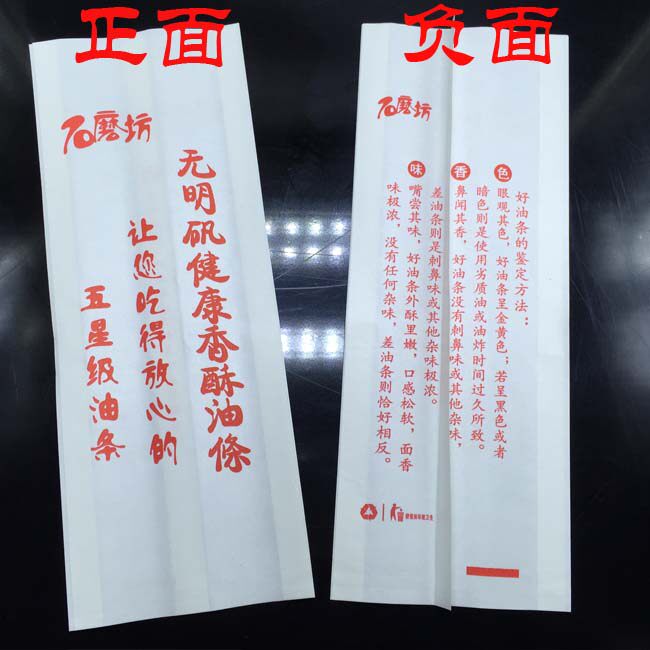 正面
石磨坊
无明矾健康香酥油條
让您吃得放心的
五星级油条
负面
石磨坊
好油条的鉴定方法：
色
眼观其色，好油条呈金黄色；若呈黑色或者
暗色则是使用劣质油或油炸时间过久所致。
香
鼻闻其香，好油条没有刺鼻味或其他杂味，
差油条则是刺鼻味或其他杂味极浓。
味
嘴尝其味，好油条外酥里嫩，口感松软，面香
味极浓，没有任何杂味，差油条则恰好相反。